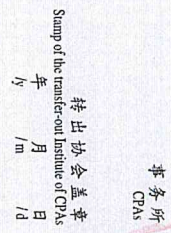 事务所
CPAs
转出协会盖章
Stamp of the transfer-out Institute of CPAs
年 月 日
/y /m /d